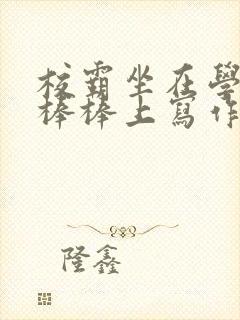 校霸坐在學
棒棒上寫作
隆鑫